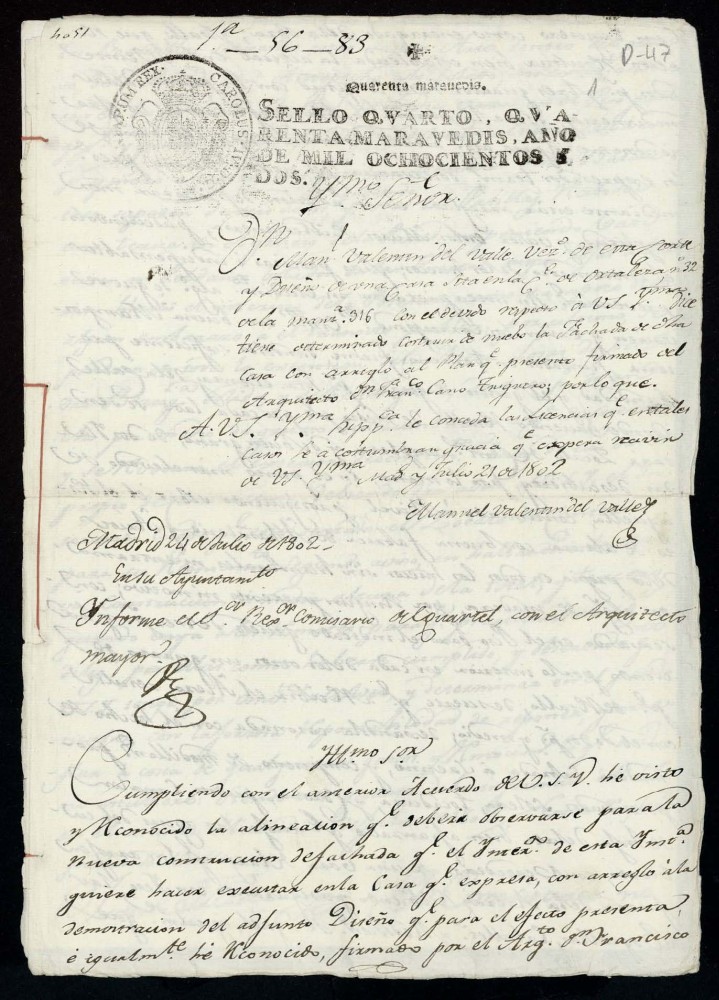 4051
1ª—56—83
D-47
1
Quarenta maravedis.
SELLO QVARTO, QVA-
RENTA MARAVEDIS, AÑO
DE MIL OCHOCIENTOS Y
DOS.
CAROLUS IV D.
REX.
Yllmo Señor.
Dn Manl Valentin del Valle, Vezº de esta Corte
y Dueño de una Casa sita en la Ce de Ortaleza nº 32
de la manzª 316 con el devido respeto à VS Yma Dice
tiene determinado costruir de nuebo la Fachada de dha
casa con arreglo al Plan qe presenta firmado del
Arquitecto Dn Franco Cano Trigueros; por lo que.
A. VS. Yma suppca le conceda las Licencias qe en tales
casos se acostumbran gracia qe espera recivir
de VS Yma Madd y Julio 21 de 1802
Manuel Valentin del Valle
Madrid 24 de Julio de 1802-
En su Ayuntamto
Informe el Sor Rexor Comisario del Quartel, con el Arquitecto
mayor.
Yllmo Sor
Cumpliendo con el anterior Acuerdo de V.S.Y. hè visto
y Rconocido la alineacion qe deberá observarse para la
nueva construccion de fachada qe el Ynterº de esta Ynstª
quiere hacer executar en la Casa qe expresa, con arreglo à la
demostracion del adjunto Diseño qe para el efecto presenta,
è igualmte hè Rconocido, firmado por el Arqto Dn Francisco